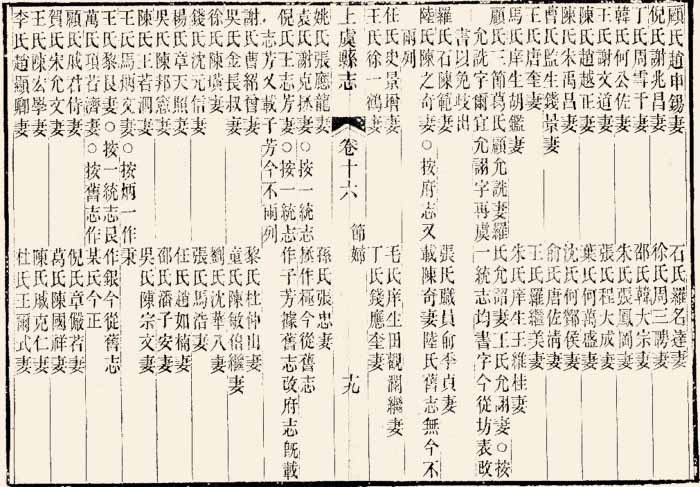 顧氏趙申錫妻　石氏羅名達妻
倪氏謝兆昌妻　徐氏周三聘妻
丁氏周雪于妻　邵氏韓大宗妻
韓氏何公佐妻　朱氏張鳳岡妻
王氏謝文道妻　張氏程大成妻
陳氏趙越正妻　葉氏何萬盛妻
陳氏朱禹昌妻　沈氏何鄮侯妻
曹氏監生錢景妻　俞氏唐佐清妻
王氏唐奎妻　王氏羅繼美妻
馬氏庠生胡鑑妻　朱氏庠生王維桂妻
顧氏三節葛氏顧允詵妻羅氏允詡妻王氏允諏妻○按
允詵字爾宜允詡字再虞一統志均書字今從坊表改
書以免歧出
羅氏石陳範妻　張氏職員俞季貞妻
陸氏陳之奇妻○按府志又載陳奇妻陸氏舊志無今不
兩列
任氏史景瑁妻　毛氏庠生田觀瀾繼妻
王氏徐一鶴妻　丁氏錢應奎妻
上虞縣志　卷十六　節婦　十九
姚氏張應龍妻　孫氏張忠妻
袁氏謝克拯妻○按一統志拯作極今從舊志
倪氏王志芳妻○按一統志作子芳據舊志改府志既載
志芳又載子芳今不兩列
謝氏曹紹曾妻　黎氏杜仲山妻
吳氏金長叔妻　童氏陳敏倍繼妻
徐氏陳璜妻　劉氏沈華八妻
錢氏沈元信妻　張氏馬浩妻
楊氏章天照妻　任氏趙如楠妻
吳氏陳邦憲妻　邵氏潘子安妻
陳氏王若泗妻　吳氏陳宗文妻
王氏馬炳文妻○按炳一作秉
王氏黎艮妻○按一統志艮作銀今從舊志
萬氏項若濟妻○按舊志作某氏今正
顧氏戚君侍妻　倪氏章儼若妻
賀氏宋允文妻　葛氏陳國祥妻
王氏陳宏學妻　陳氏戚克仁妻
李氏趙顯卿妻　杜氏王爾式妻